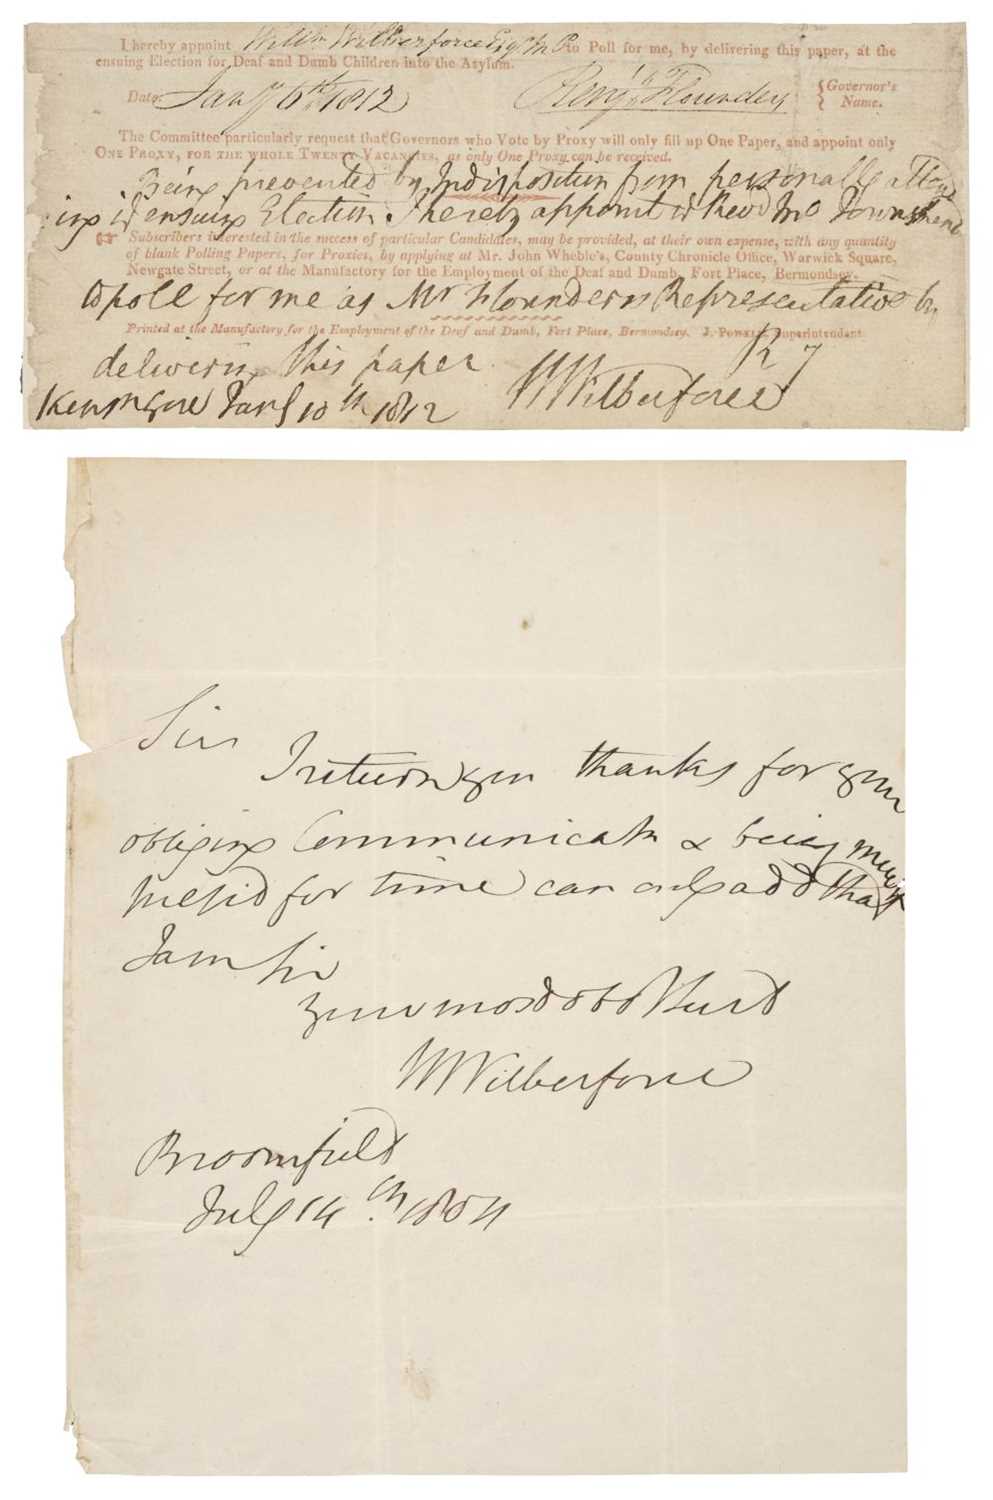 I hereby appoint Willm Wilberforce Esq. M P to Poll for me, by delivering this paper, at the
ensuing Election for Deaf and Dumb Children into the Asylum.
Date: Jany 6th 1812 Benjn Flounders {Governor's Name.
The Committee particularly request that Governors who Vote by Proxy will only fill up One Paper, and appoint only
ONE PROXY, FOR THE WHOLE TWENTY VACANCIES, as only One Proxy can be received.
Being prevented by Indisposition from personally attend
ing ye ensuing Election I hereby appoint ye Revd Mr Townshend
☞ Subscribers interested in the success of particular Candidates, may be provided, at their own expense, with any quantity
of blank Polling Papers, for Proxies, by applying at Mr. John Wheble's, County Chronicle Office, Warwick Square,
Newgate Street, or at the Manufactory for the Employment of the Deaf and Dumb, Fort Place, Bermondsey.
to poll for me as Mr Flounders's Representative by
Printed at the Manufactory for the Employment of the Deaf and Dumb, Fort Place, Bermondsey. J. POWELL, Superintendant
delivering this paper
Kensn Gore Jany 10th 1812 W Wilberforce
Sir
I return you thanks for your
obliging Communicatn & being much
press'd for time can only add that
I am Sir
your most obd Servt
W Wilberforce
Broomfield
July 14th. 1804